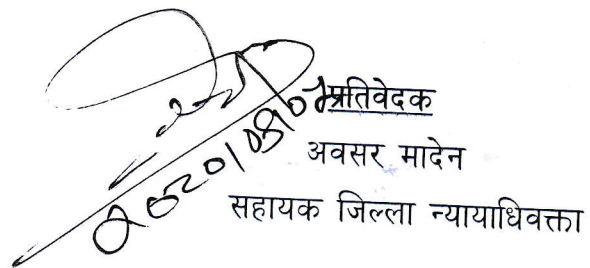 प्रतिवेदक
अवसर मादेन
सहायक जिल्ला न्यायाधिवक्ता